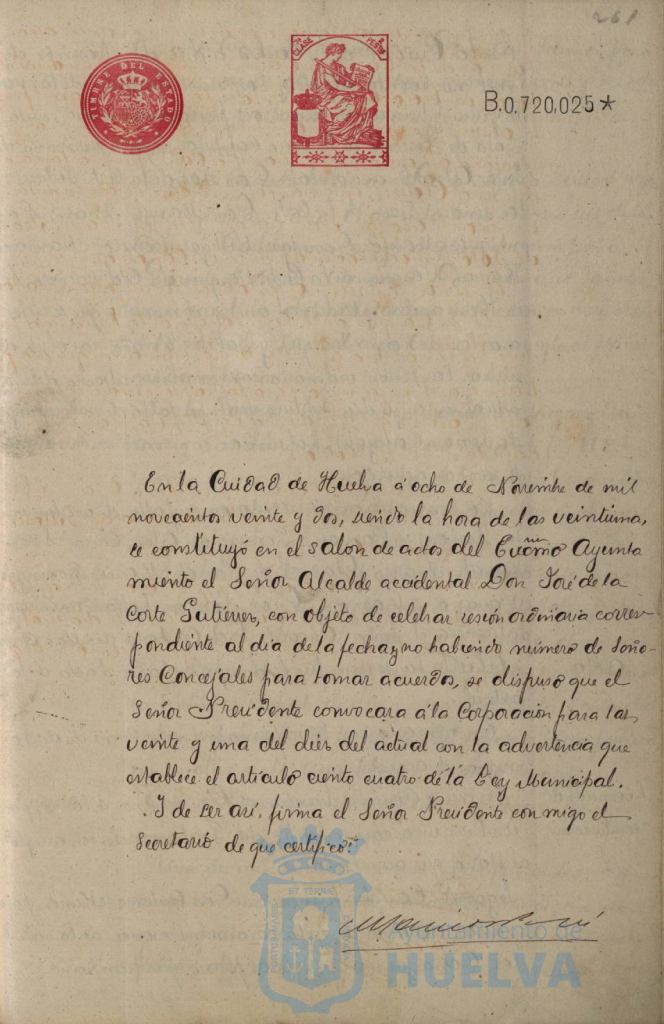 261
TIMBRE DEL ESTADO
7ª CLASE
2 PESETAS
B.0.720,025*
En la Cuidad de Huelva á ocho de Noviembre de mil
novecientos veinte y dos, siendo la hora de las veintiuna,
se constituyó en el salon de actos del Excmo Ayunta
miento el Señor Alcalde accidental Don José de la
Corte Gutierrez, con objeto de celebrar sesión ordinaria corres-
pondiente al dia de la fecha, y no habiendo número de Seño-
res Concejales para tomar acuerdos, se dispuso que el
Señor Presidente convocara á la Corporación para las
veinte y una del diez del actual con la advertencia que
establece el articulo ciento cuatro de la Ley Municipal.
Y de ser asi, firma el Señor Presidente conmigo el
Secretario de que certifico:
Ayuntamiento de
HUELVA